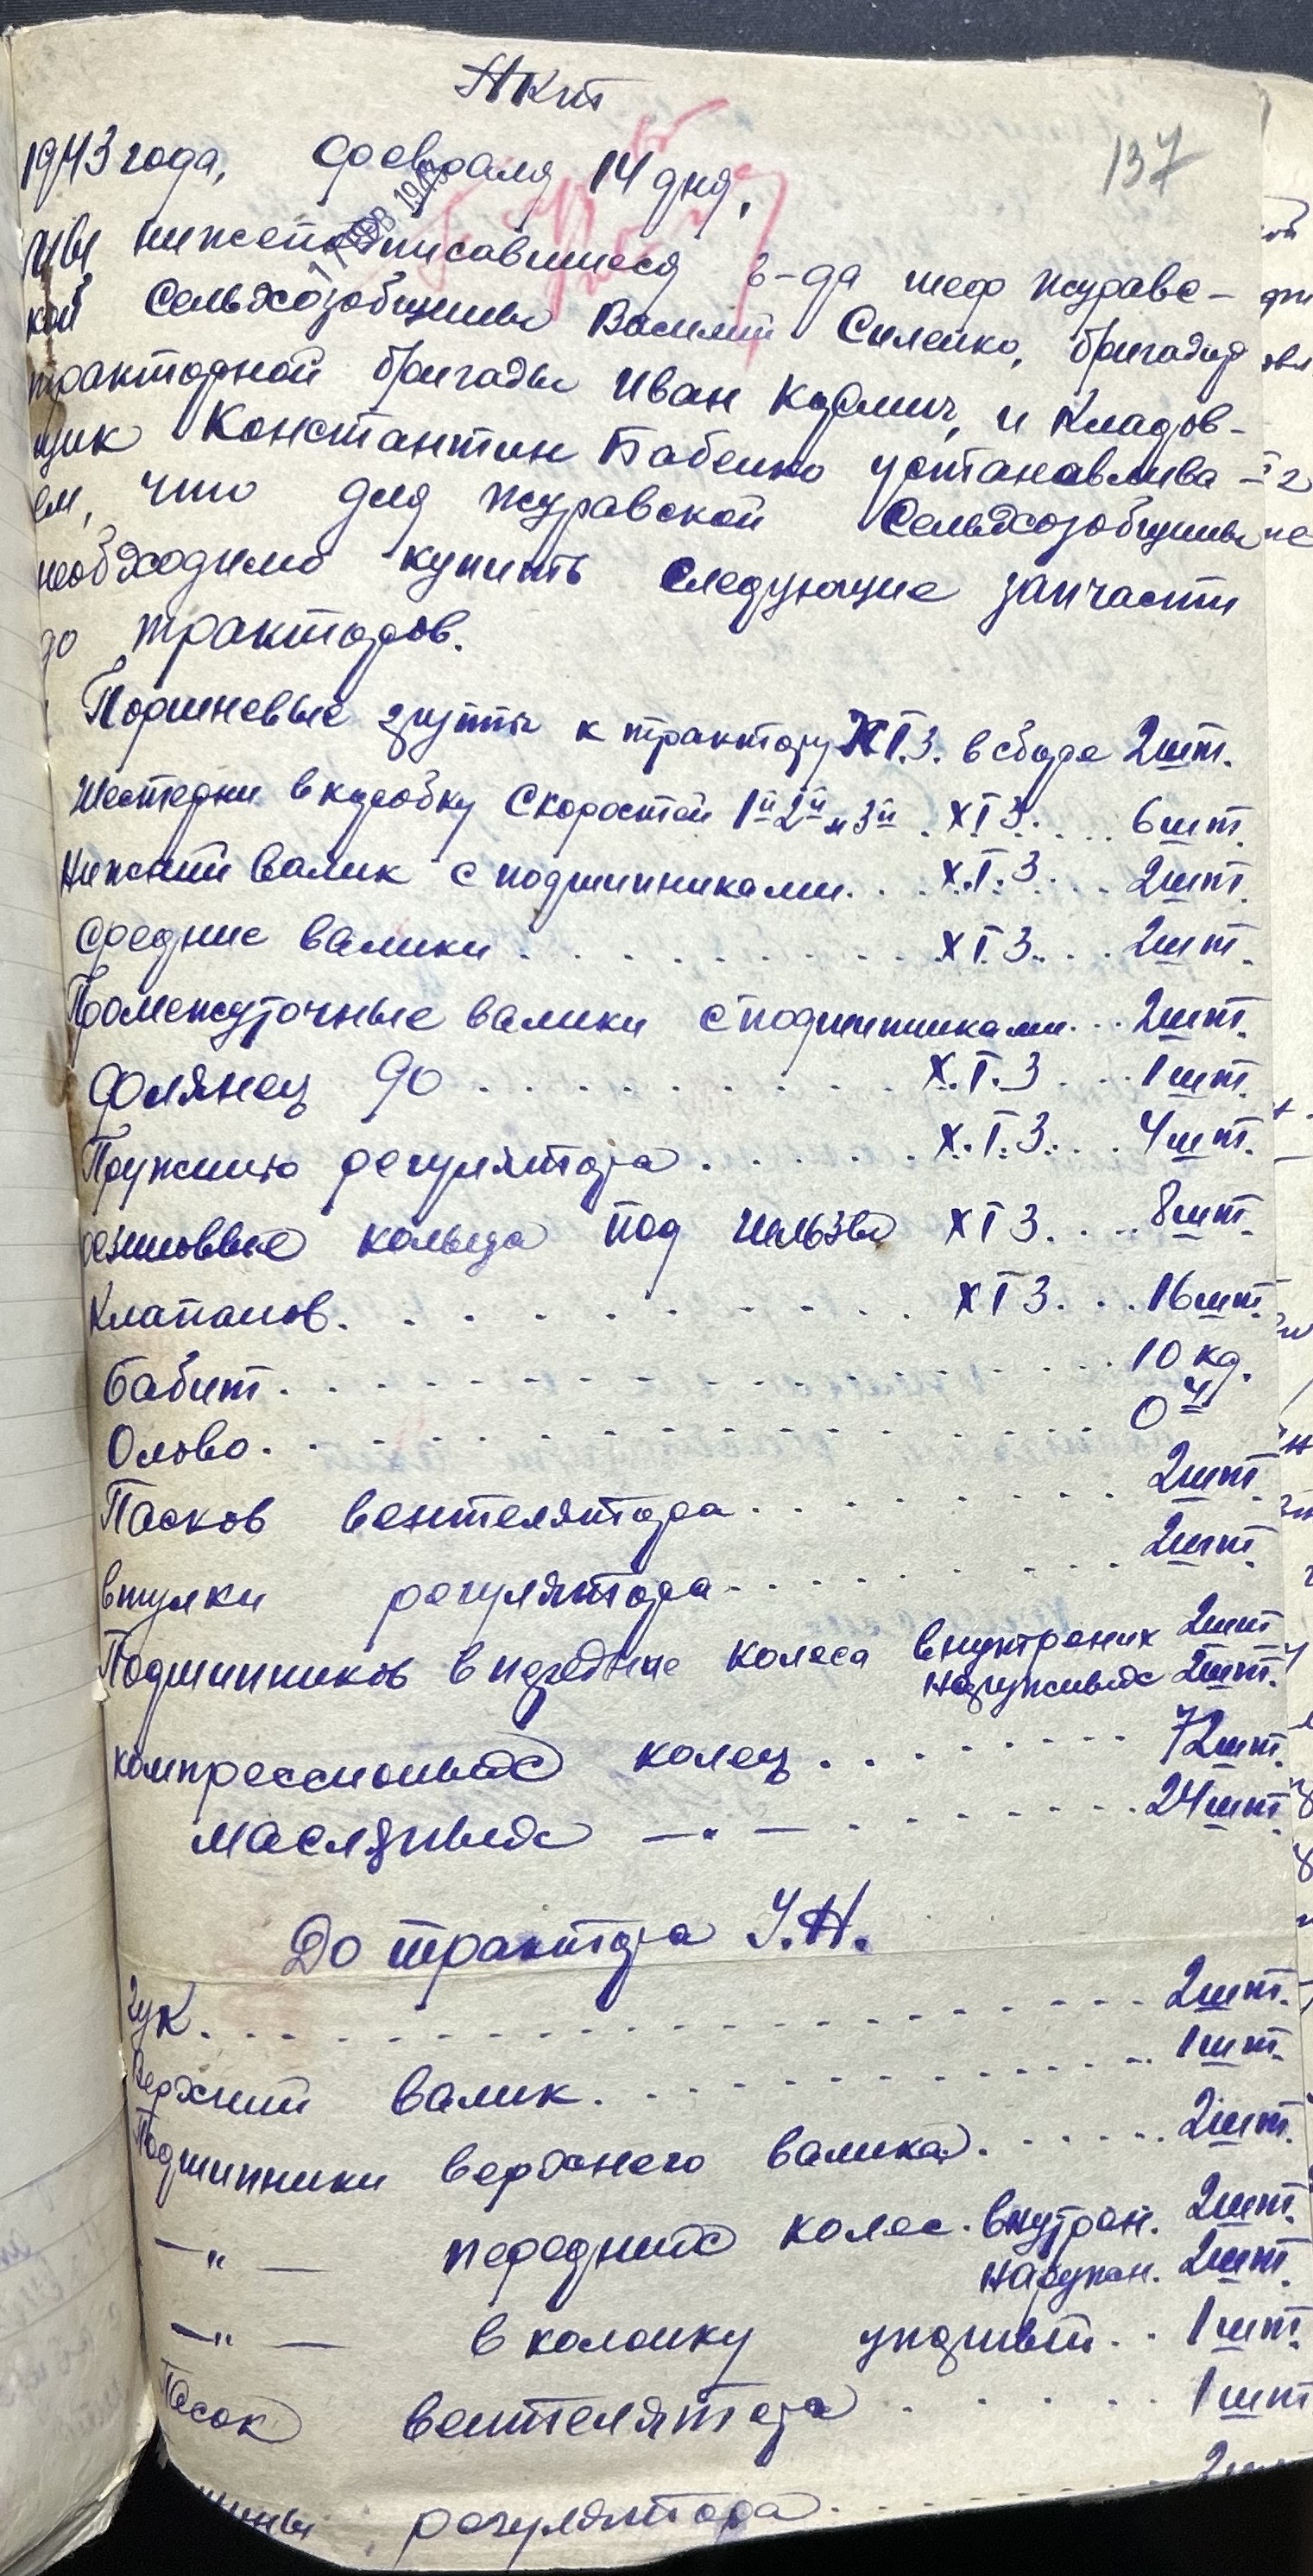 Акт
137
1943 года, февраля 14 дня,
17 ФЕВ 1943
мы нижеподписавшиеся з-да шеф Журавс-
кой Сельхозобщины Василий Силенко, бригадир
тракторной бригады Иван Кузмич, и Кладов-
щик Константин Бабенко устанавлива-
ем, что для Журавской Сельхозобщины
необходимо купить следующие запчасти
до тракторов.
Поршневые группы к трактору ХТЗ. в сборе 2 шт.
Шестерни в коробку Скоростей 1й 2й и 3й . ХТЗ. . . . 6 шт.
Нижний валик с подшипниками. . . Х.Т.З. . . 2 шт.
Средние валики . . . . . . . . ХТЗ. . . 2 шт.
Промежуточные валики с подшипниками. . . 2 шт.
Фолянец до . . . . . . . . Х.Т.З . . . 1 шт.
Пружино регулятора . . . . . Х.Т.З. . . 4 шт.
резиновые кольца под гильзы ХТЗ. . . . 8 шт.
Клапанов. . . . . . . . . ХТЗ. . . 16 шт.
Бабит. . . . . . . . . . . . . 10 кг.
Олово. . . . . . . . . . . . . 0 4
Пасков вентелятора. . . . . . . . 2 шт.
втулки регулятора. . . . . . . . 2 шт.
Подшипников в передние колеса внутрених 2 шт
наружных 2 шт.
компрессионых колец. . . . . . . . 72 шт.
масляных —„— . . . . . . . 24 шт.
До трактора У.Н.
Гук. . . . . . . . . . . . . . . 2 шт.
Верхний валик. . . . . . . . . . 1 шт.
Подшипники верхнего валика. . . . . . 2 шт.
—„— передних колес. внутрен. 2 шт.
наружн. 2 шт.
—„— в колонку . . 1 шт.
Пасок вентелятора . . . . . 1 шт
регулятора. . . . . 2